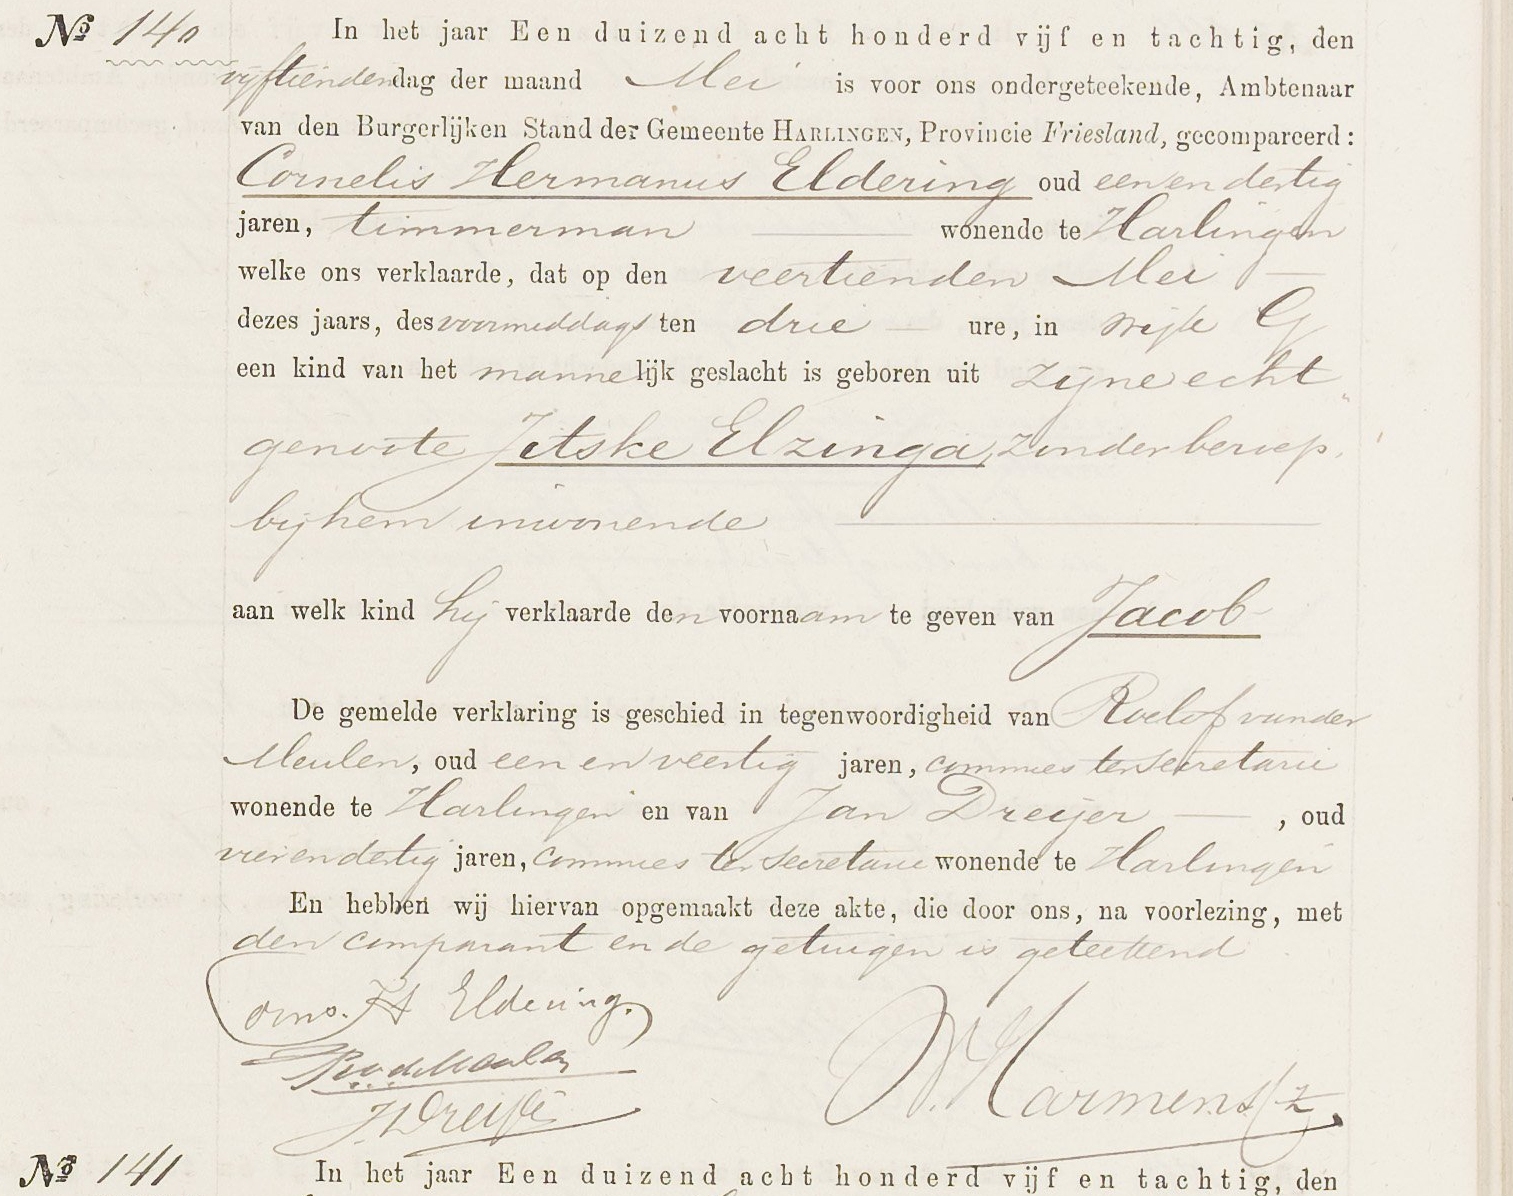 No 140 In het jaar Een duizend acht honderd vijf en tachtig, den
vijftienden dag der maand Mei is voor ons ondergeteekende, Ambtenaar
van den Burgerlijken Stand der Gemeente HARLINGEN, Provincie Friesland, gecompareerd:
Cornelis Hermanus Eldering oud een en dertig
jaren, timmerman wonende te Harlingen
welke ons verklaarde, dat op den veertienden Mei
dezes jaars, des voormiddags ten drie ure, in wijk G
een kind van het mannelijk geslacht is geboren uit zijne echt"
genoote Jetske Elzinga, zonder beroep,
bij hem inwonende
aan welk kind hij verklaarde den voornaam te geven van Jacob
De gemelde verklaring is geschied in tegenwoordigheid van Roelof van der
Meulen, oud een en veertig jaren, commies ter secretarie
wonende te Harlingen en van Jan Dreijer, oud
vier en dertig jaren, commies ter secretarie wonende te Harlingen
En hebben wij hiervan opgemaakt deze akte, die door ons, na voorlezing, met
den comparant en de getuigen is geteekend
Corns. H Eldering.
RvdMeulen
J Dreijer
Harmens Hz.
No 141 In het jaar Een duizend acht honderd vijf en tachtig, den